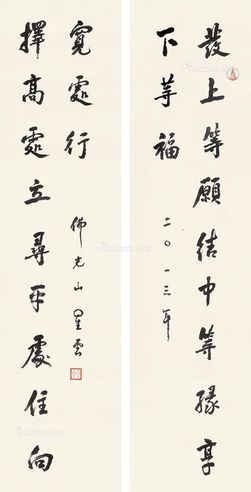 發上等願結中等緣享
下等福
二〇一三年
擇高處立尋平處住向
寬處行
佛光山星雲